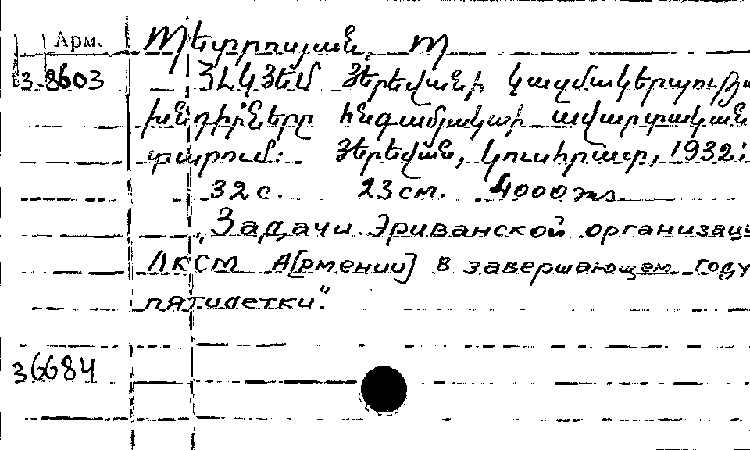 Арм. Պետրոսյան, Պ
3-8603 ՀԼԿՅԵՄ Յերեվանի կազմակերպությա
խնդիրները հնգամյակի ավարտական
տարում: Յերեվան, կուսհրատ, 1932:
32 с. 23 см. 4000 экз.
"Задачи Эриванской организаци
ЛКСМ А[рмении] в завершающем году
пятилетки".
36684